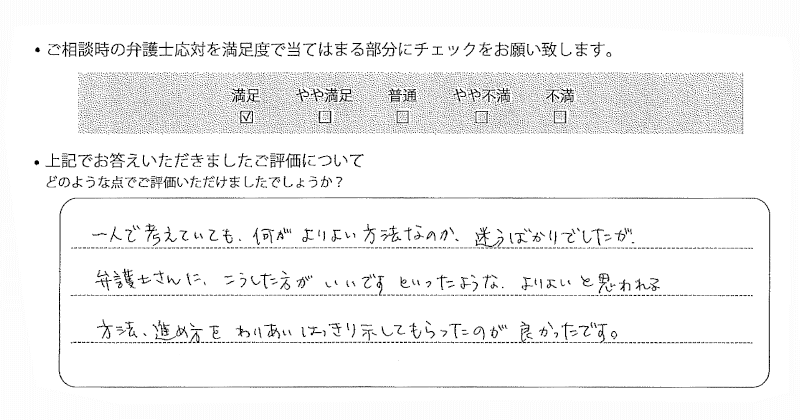 ・ご相談時の弁護士応対を満足度で当てはまる部分にチェックをお願い致します。
満足 やや満足 普通 やや不満 不満
☑ ☐ ☐ ☐ ☐
・上記でお答えいただきましたご評価について
どのような点でご評価いただけましたでしょうか？
一人で考えていても、何がよりよい方法なのか、迷うばかりでしたが、
弁護士さんに、こうした方がいいですといったような、よりよいと思われる
方法、進め方をわりあいはっきり示してもらったのが良かったです。